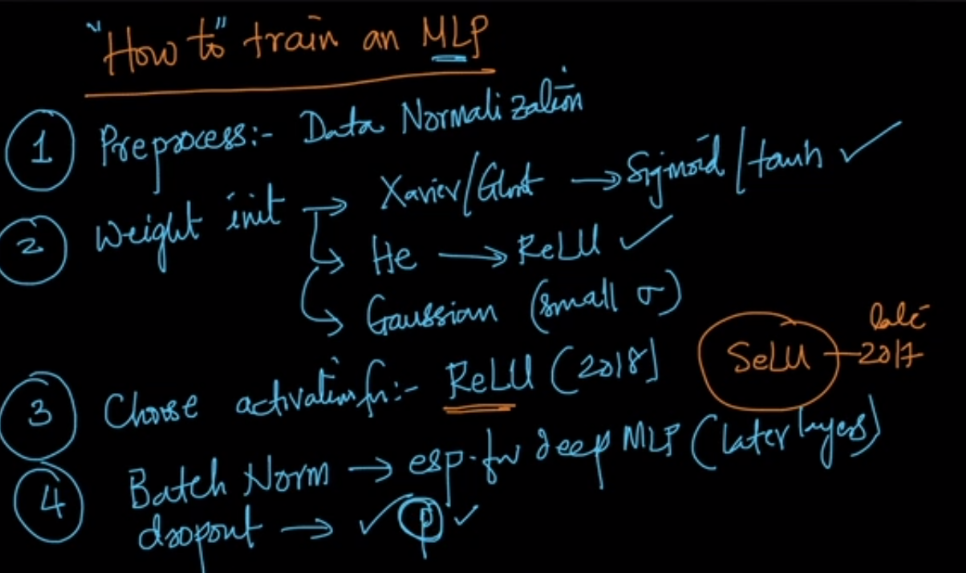 "How to" train an MLP
1 Preprocess:- Data Normalization
2 Weight init → Xavier/Glorot → Sigmoid/tanh ✓
→ He → ReLU ✓
→ Gaussian (small σ)
3 Choose activation fn:- ReLU (2018] SeLU - late 2017
4 Batch Norm → esp. for deep MLP (later layers)
dropout → ✓ p ✓